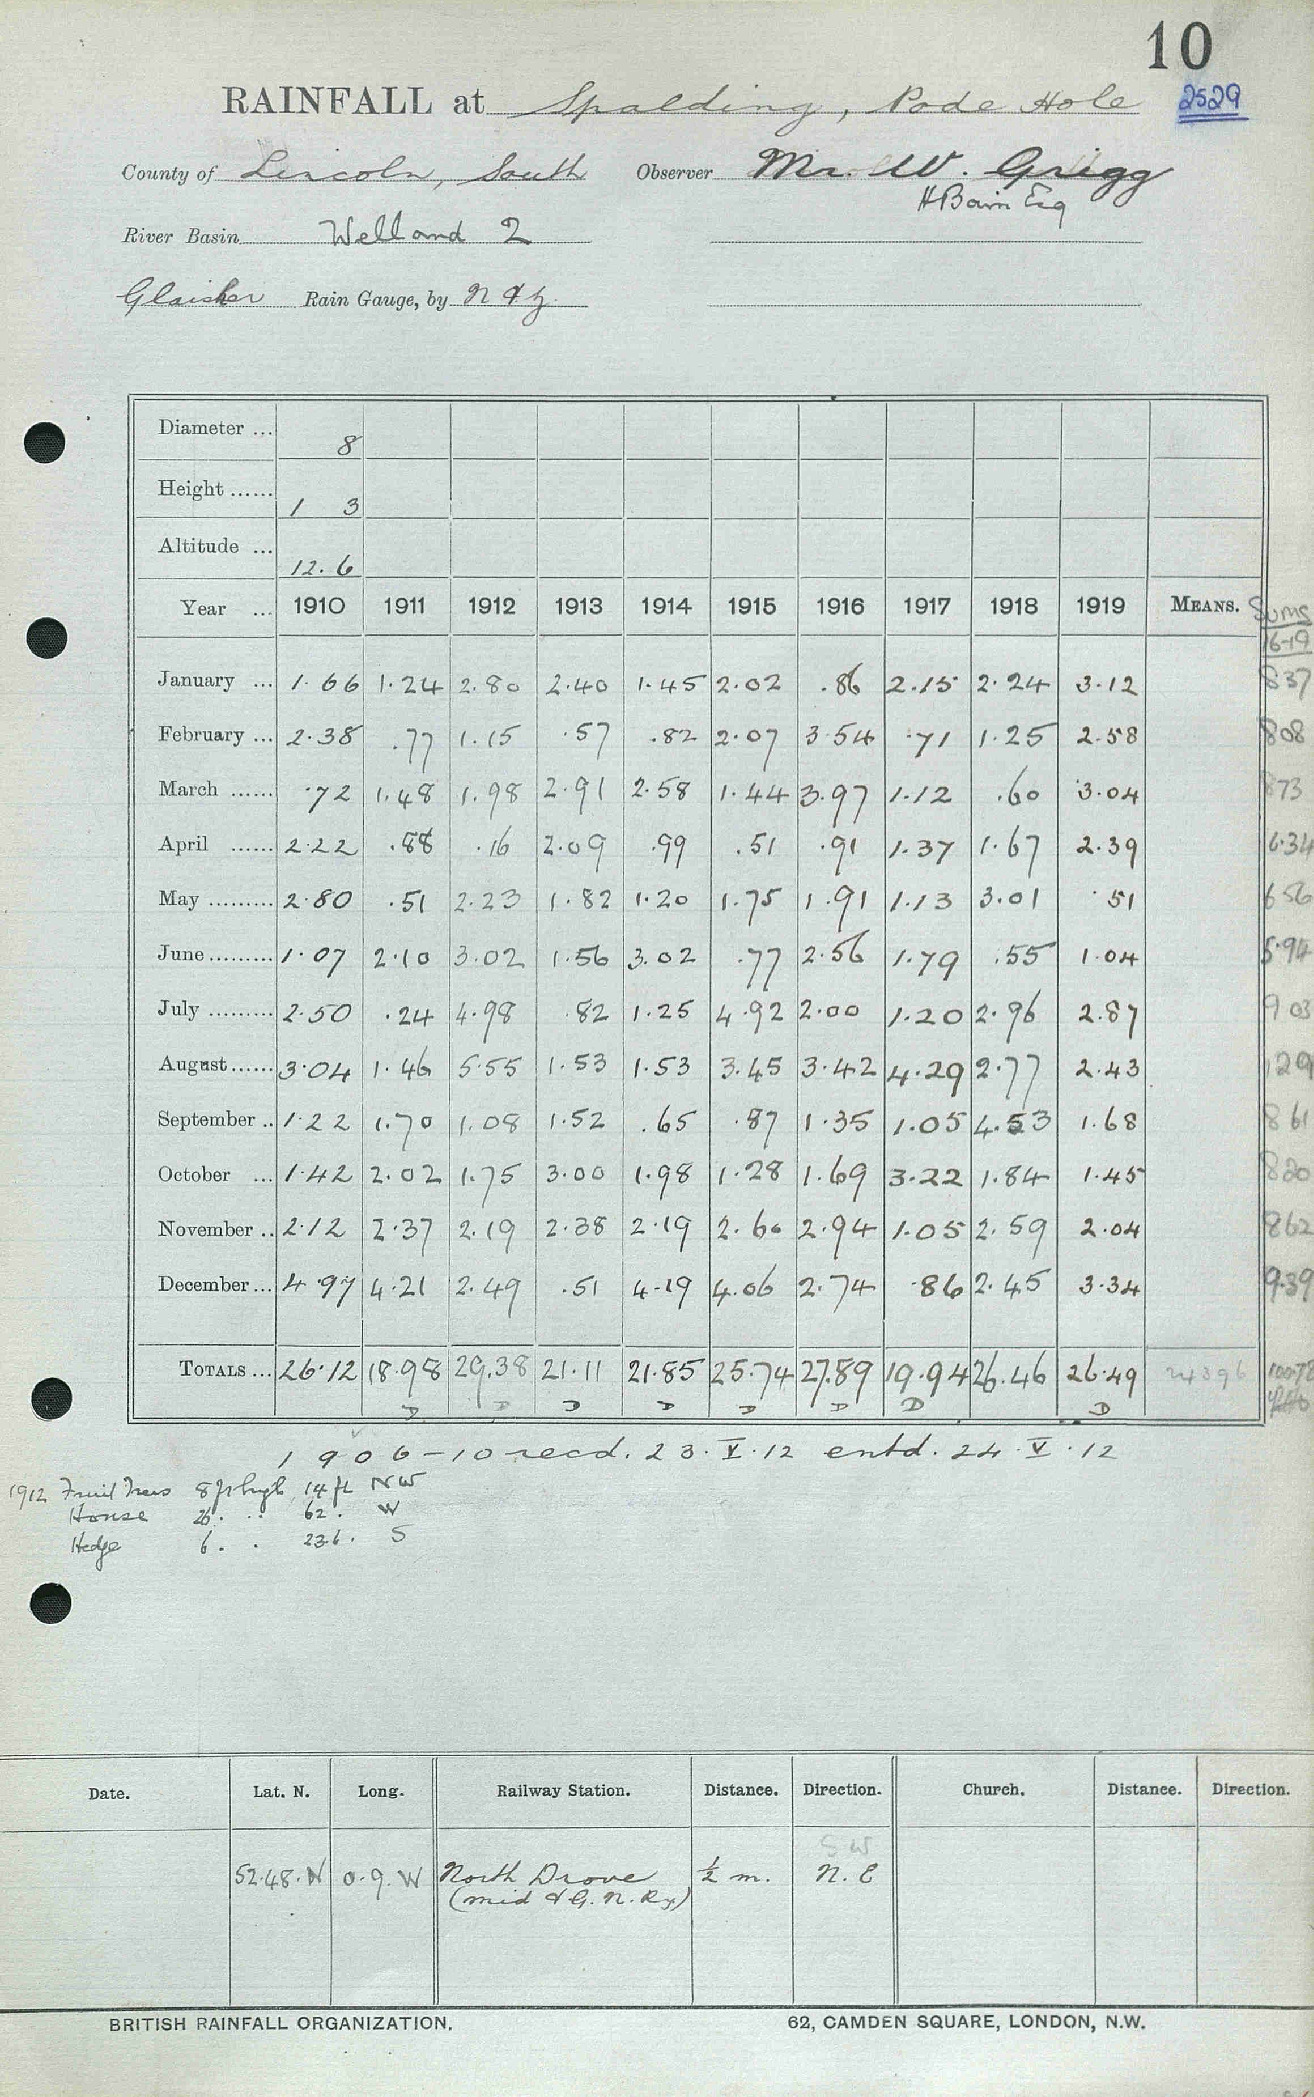 10
RAINFALL at Spalding, Pode Hole 2529
County of Lincoln, South Observer Mr. W. Grigg
H Bain Esq
River Basin Welland 2
Glaisher Rain Gauge, by N & Z
Diameter ... 8
Height ...... 1 3
Altitude ... 12.6
Year ... 1910 1911 1912 1913 1914 1915 1916 1917 1918 1919 MEANS. Sums
16-19
January ... 1.66 1.24 2.80 2.40 1.45 2.02 .86 2.15 2.24 3.12 837
February ... 2.38 .77 1.15 .57 .82 2.07 3.54 .71 1.25 2.58 808
March ...... .72 1.48 1.98 2.91 2.58 1.44 3.97 1.12 .60 3.04 873
April ...... 2.22 .88 .16 2.09 .99 .51 .91 1.37 1.67 2.39 6.34
May ......... 2.80 .51 2.23 1.82 1.20 1.75 1.91 1.13 3.01 .51 656
June ......... 1.07 2.10 3.02 1.56 3.02 .77 2.56 1.79 .55 1.04 5.94
July ......... 2.50 .24 4.98 .82 1.25 4.92 2.00 1.20 2.96 2.87 9 03
August ...... 3.04 1.46 5.55 1.53 1.53 3.45 3.42 4.29 2.77 2.43 129
September .. 1.22 1.70 1.08 1.52 .65 .87 1.35 1.05 4.53 1.68 8 61
October ... 1.42 2.02 1.75 3.00 1.98 1.28 1.69 3.22 1.84 1.45 820
November .. 2.12 2.37 2.19 2.38 2.19 2.60 2.94 1.05 2.59 2.04 862
December ... 4.97 4.21 2.49 .51 4.19 4.06 2.74 .86 2.45 3.34 9.39
TOTALS ... 26.12 18.98 29.38 21.11 21.85 25.74 27.89 19.94 26.46 26.49 24396
D D D D D D D D
1906-10 recd. 23.V.12 entd. 24.V.12
1912 Fruit Trees 8 ft high, 14 ft NW
House 26. .. 62. W
Hedge 6. . 236. S
Date. Lat. N. Long. Railway Station. Distance. Direction. Church. Distance. Direction.
SW
52.48.N 0.9.W North Drove ½ m. N.E
(Mid & G.N.Ry)
BRITISH RAINFALL ORGANIZATION. 62, CAMDEN SQUARE, LONDON, N.W.